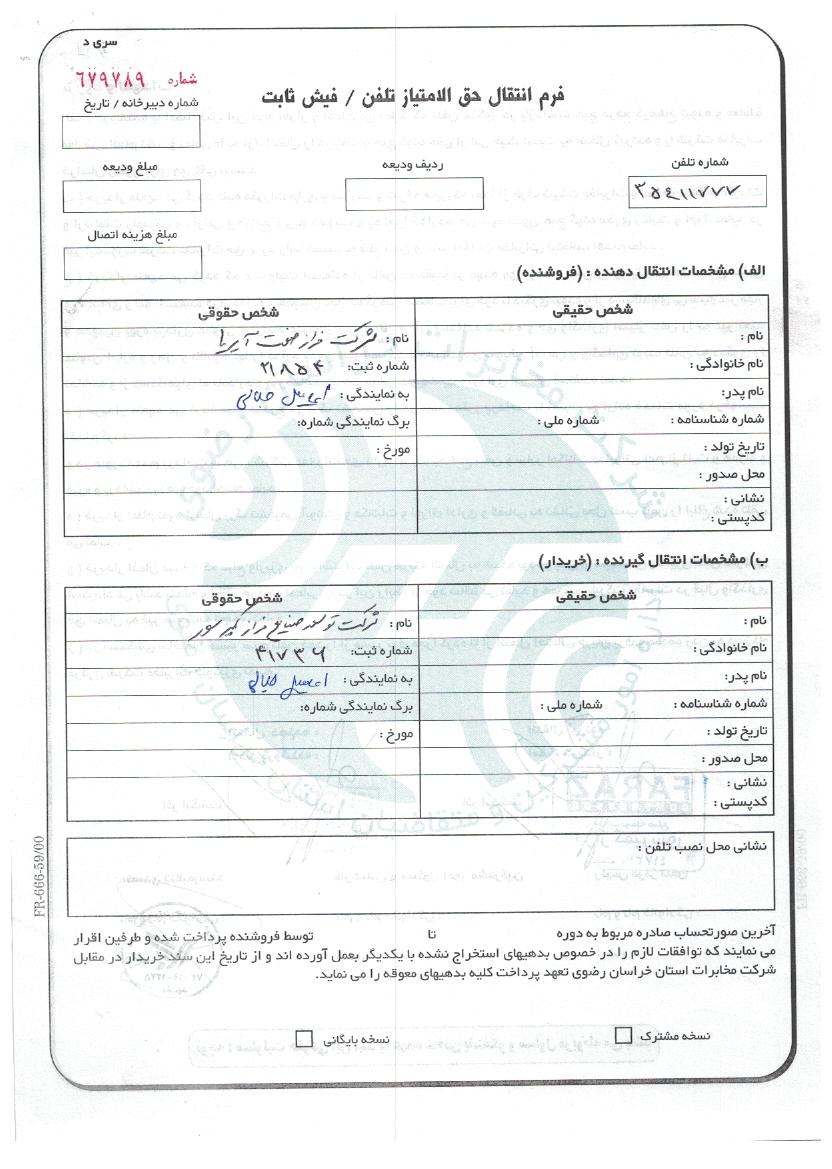 سری د
شماره ۶۷۹۷۸۹
فرم انتقال حق الامتیاز تلفن / فیش ثابت
شماره دبیرخانه / تاریخ
شماره تلفن
ردیف ودیعه
مبلغ ودیعه
۳۵۴۱۱۷۷۷
مبلغ هزینه اتصال
الف) مشخصات انتقال دهنده : (فروشنده)
شخص حقیقی
شخص حقوقی
نام :
نام : شرکت فراز صنعت آریا
نام خانوادگی :
شماره ثبت: ۲۱۸۵۴
نام پدر:
به نمایندگی :
شماره شناسنامه : شماره ملی :
برگ نمایندگی شماره:
تاریخ تولد :
مورخ :
محل صدور :
نشانی :
کدپستی :
ب) مشخصات انتقال گیرنده : (خریدار)
شخص حقیقی
شخص حقوقی
نام :
نام : شرکت توسعه صنایع فراز
نام خانوادگی :
شماره ثبت: ۴۱۷۳۶
نام پدر:
به نمایندگی :
شماره شناسنامه : شماره ملی :
برگ نمایندگی شماره:
تاریخ تولد :
مورخ :
محل صدور :
نشانی :
کدپستی :
نشانی محل نصب تلفن :
آخرین صورتحساب صادره مربوط به دوره تا توسط فروشنده پرداخت شده و طرفین اقرار
می نمایند که توافقات لازم را در خصوص بدهیهای استخراج نشده با یکدیگر بعمل آورده اند و از تاریخ این سند خریدار در مقابل
شرکت مخابرات استان خراسان رضوی تعهد پرداخت کلیه بدهیهای معوقه را می نماید.
نسخه مشترک
نسخه بایگانی
FR-666-59/00